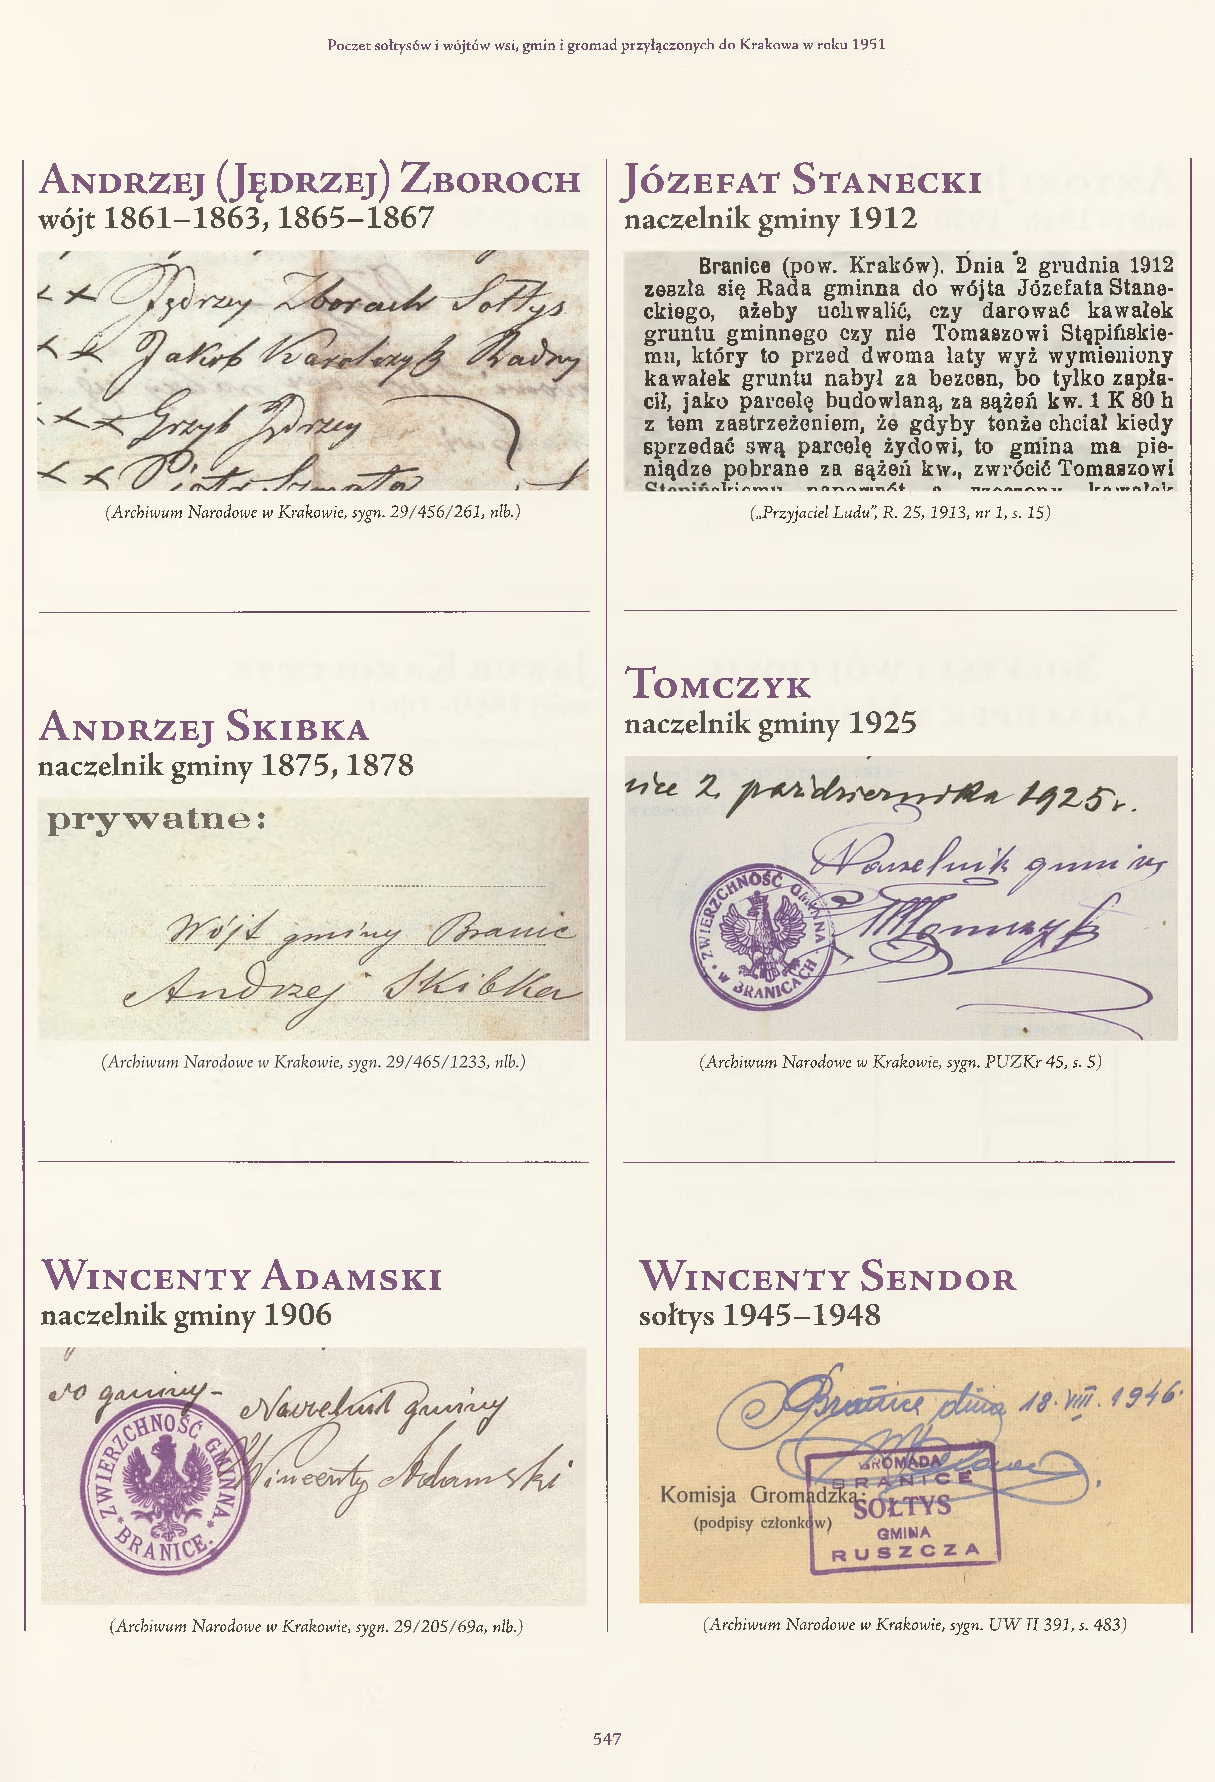 Poczet sołtysów i wójtów wsi, gmin i gromad przyłączonych do Krakowa w roku 1951
Andrzej (Jędrzej) Zboroch
wójt 1861–1863, 1865–1867
Jędrzey Zboroch Sołtys
Jakób Karolczyk Radny
Grzyb Jędrzey
Piotr Szmata
(Archiwum Narodowe w Krakowie, sygn. 29/456/261, nlb.)
Andrzej Skibka
naczelnik gminy 1875, 1878
prywatne:
Wójt gminy Branic
Andrzej Skibka
(Archiwum Narodowe w Krakowie, sygn. 29/465/1233, nlb.)
Wincenty Adamski
naczelnik gminy 1906
gminy-
Naczelnik gminy
Wincenty Adamski
ZWIERZCHNOŚĆ GMINNA
* BRANICE. *
(Archiwum Narodowe w Krakowie, sygn. 29/205/69a, nlb.)
Józefat Stanecki
naczelnik gminy 1912
Branice (pow. Kraków). Dnia 2 grudnia 1912
zeszła się Rada gminna do wójta Józefata Stane-
ckiego, ażeby uchwalić, czy darować kawałek
gruntu gminnego czy nie Tomaszowi Stępińskie-
mu, który to przed dwoma laty wyż wymieniony
kawałek gruntu nabył za bezcen, bo tylko zapła-
cił, jako parcelę budowlaną, za sążeń kw. 1 K 80 h
z tem zastrzeżeniem, że gdyby tenże chciał kiedy
sprzedać swą parcelę żydowi, to gmina ma pie-
niądze pobrane za sążeń kw., zwrócić Tomaszowi
Stępińskiemu napowrót a kawałek
(„Przyjaciel Ludu”, R. 25, 1913, nr 1, s. 15)
Tomczyk
naczelnik gminy 1925
nice 2 październida 1925 r.
Naczelnik gminy
Tomczyk
ZWIERZCHNOŚĆ GMINNA
W BRANICACH
(Archiwum Narodowe w Krakowie, sygn. PUZKr 45, s. 5)
Wincenty Sendor
sołtys 1945–1948
Branice dnia 18. VIII. 1946.
GROMADA
BRANICE
Komisja Gromadzka:
SOŁTYS
(podpisy członków)
GMINA
RUSZCZA
(Archiwum Narodowe w Krakowie, sygn. UW II 391, s. 483)
547